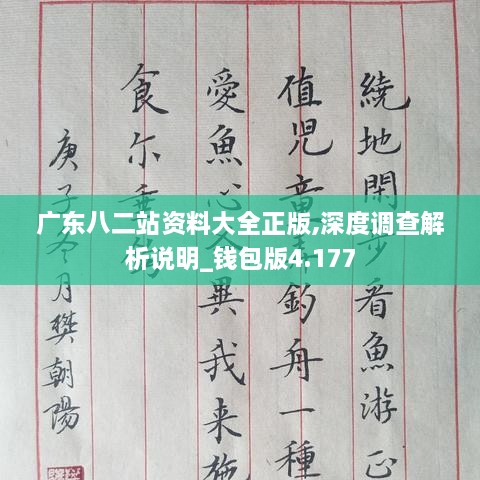 繞地閒步看魚游正
值児童弄釣舟一種
愛魚心各異我来施
食尔垂鈎
庚子冬月樊朝陽
广东八二站资料大全正版,深度调查解
析说明_钱包版4.177